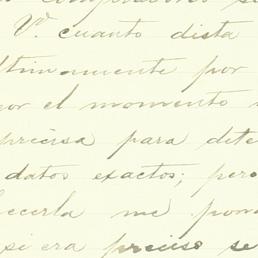 Vd. cuanto dista
ultimamente por
por el momento
precisa para dete
datos exactos; pero
hacerla me pon
si era preciso se